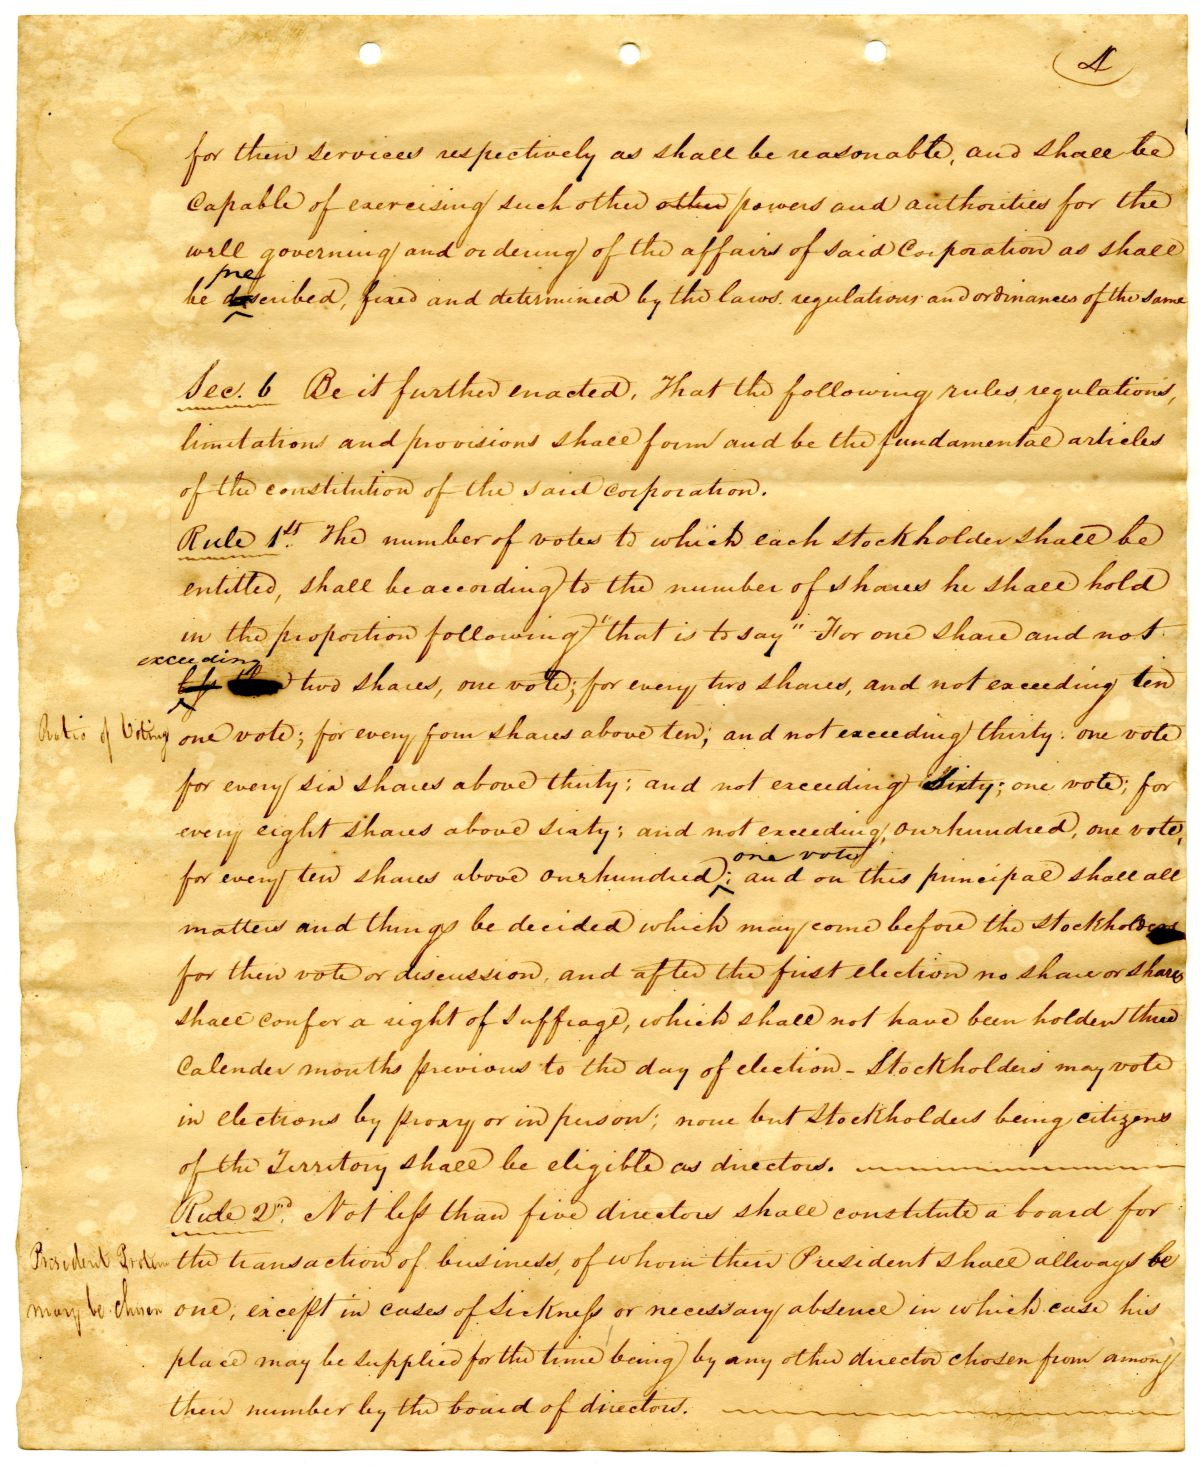 4
for their services respectively as shall be reasonable, and shall be
capable of exercising such other other powers and authorities for the
well governing and ordering of the affairs of said Corporation as shall
pre
be scribed, fixed and determined by the laws. regulations and ordinances of the same
Sec. 6 Be it further enacted, That the following rules, regulations,
limitations and provisions shall form and be the fundamental articles
of the constitution of the said corporation.
Rule 1st. The number of votes to which each stockholder shall be
entitled, shall be according to the number of shares he shall hold
in the proportion following "that is to say" For one share and not
exceeding
less two shares, one vote; for every two shares, and not exceeding ten
Ratio of Voting
one vote; for every four shares above ten; and not exceeding thirty. one vote
for every six shares above thirty; and not exceeding Sixty; one vote; for
every eight shares above sixty; and not exceeding, onehundred, one vote,
one vote
for every ten shares above onehundred; and on this principal shall all
matters and things be decided which may come before the stockholders
for their vote or discussion, and after the first election no share or shares
shall confer a right of suffrage, which shall not have been holden three
Calender months previous to the day of election - Stockholders may vote
in elections by proxy or in person; none but stockholders being citizens
of the Territory shall be eligible as directors.
Rule 2nd. Not less than five directors shall constitute a board for
President Protem
the transaction of business, of whom their President shall allways be
may be chosen
one, except in cases of sickness or necessary absence in which case his
place may be supplied for the time being by any other director chosen from among
their number by the board of directors.